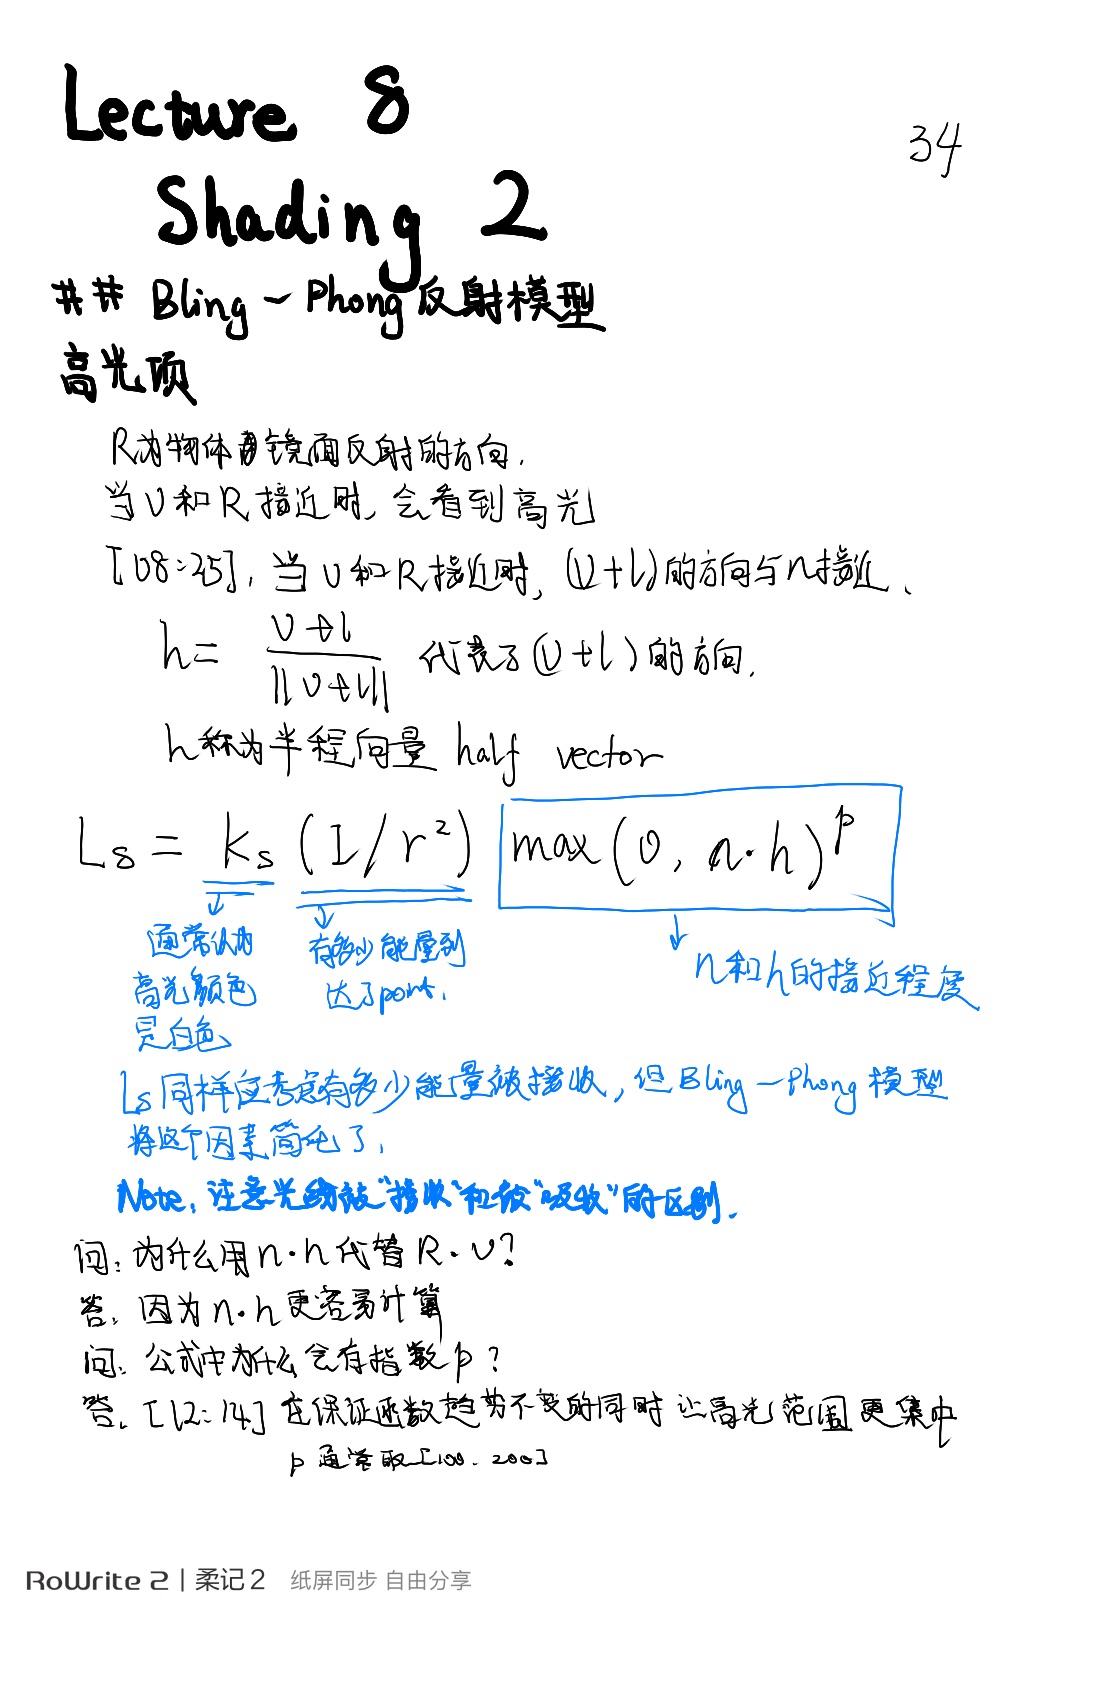 Lecture 8
34
Shading 2
## Bling-Phong反射模型
高光项
R为物体镜面反射的方向.
当v和R接近时,会看到高光
[08:25],当v和R接近时,(v+l)的方向与n接近.
h= v+l / ||v+l|| 代表了(v+l)的方向.
h称为半程向量 half vector
Ls = ks (I/r²) max(0, n·h)^p
通常认为 有多少能量到 n和h的接近程度
高光颜色 达了point.
是白色
Ls同样应考虑有多少能量被接收,但Bling-Phong模型
将这个因素简化了.
Note,注意光线被"接收"和被"吸收"的区别.
问:为什么用n·h代替R·v?
答:因为n·h更容易计算
问:公式中为什么会有指数p?
答:[12:14]在保证函数趋势不变的同时让高光范围更集中
p通常取[100,200]
RoWrite 2 | 柔记2 纸屏同步 自由分享